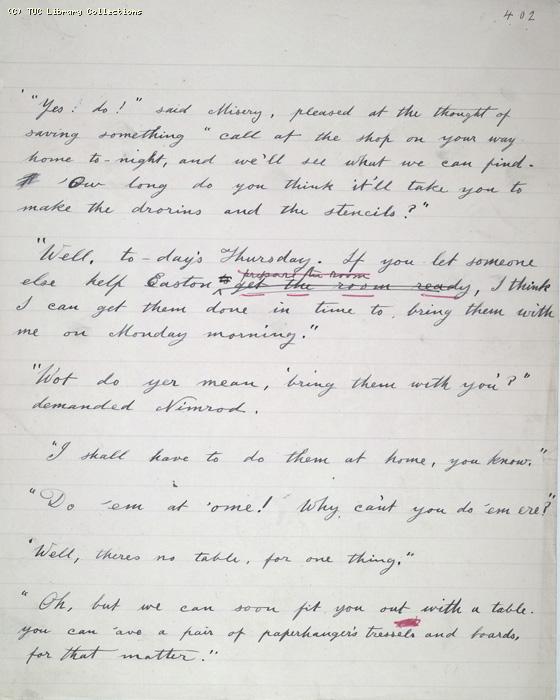 (C) TUC Library Collections
402
"Yes: do!" said Misery, pleased at the thought of
saving something "call at the shop on your way
home to-night, and we'll see what we can find.
'Ow long do you think it'll take you to
make the drorins and the stencils?"
"Well, to-day's Thursday. If you let someone
prepare the room
else help Easton to get the room ready, I think
I can get them done in time to bring them with
me on Monday morning."
"Wot do yer mean, 'bring them with you'?"
demanded Nimrod.
"I shall have to do them at home, you know."
"Do 'em at 'ome! Why cant you do 'em ere?"
"Well, theres no table, for one thing."
"Oh, but we can soon fit you out with a table.
you can 'ave a pair of paperhanger's tressels and boards,
for that matter."